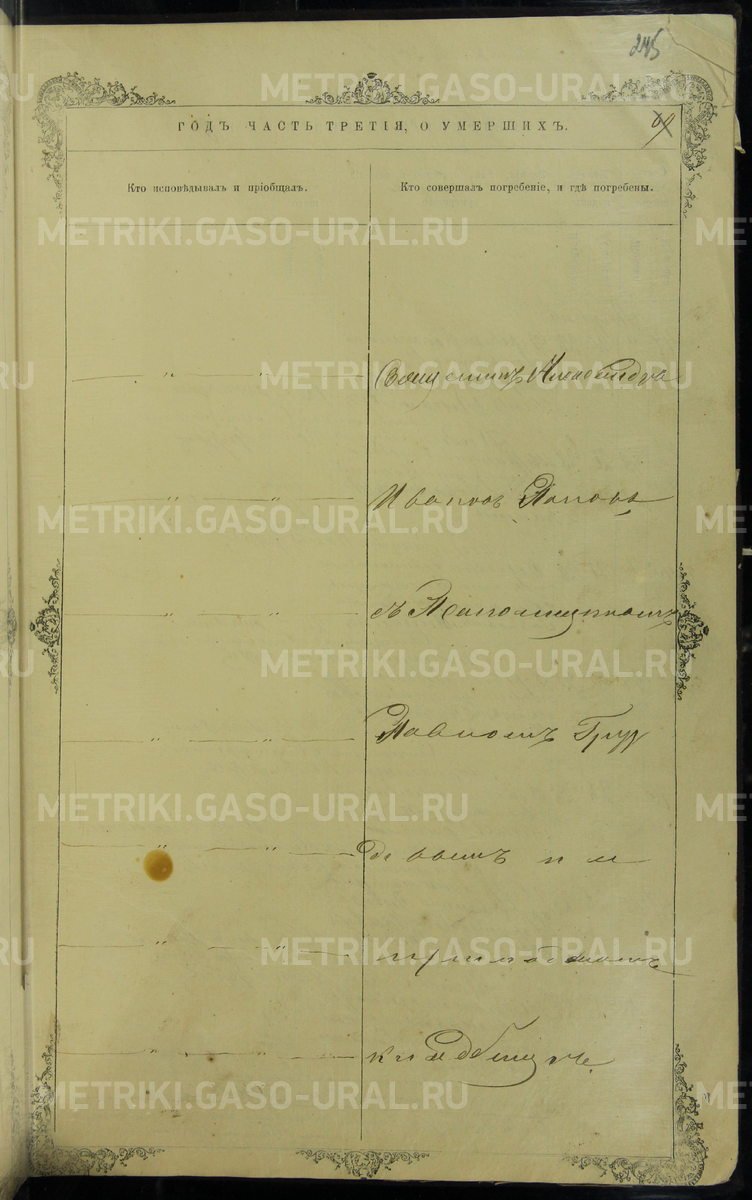 245
ГОДЪ ЧАСТЬ ТРЕТІЯ, О УМЕРШИХЪ.
Кто исповѣдывалъ и пріобщалъ.
Кто совершалъ погребеніе, и гдѣ погребены.
Священникъ Александръ
Ивановъ Поповъ
съ
Павломъ Груз
девымъ на
приходскомъ
кладбищѣ.
METRIKI.GASO-URAL.RU